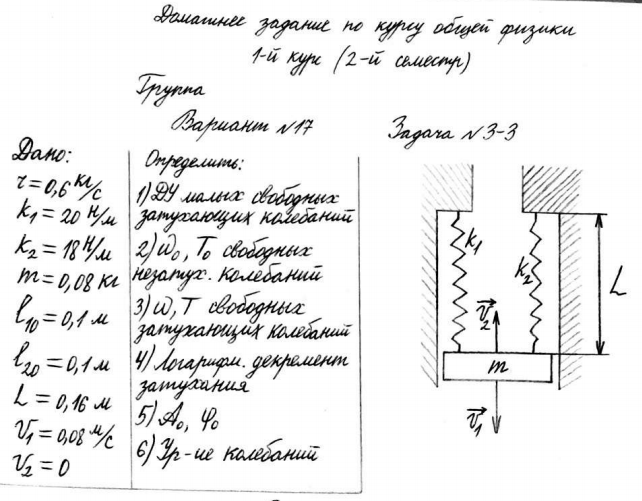 Домашнее задание по курсу общей физики
1-й курс (2-й семестр)
Группа
Вариант №17
Задача №3-3
Дано:
r=0,6 кг/с
k₁=20 Н/м
k₂=18 Н/м
m=0,08 кг
l₁₀=0,1 м
l₂₀=0,1 м
L=0,16 м
V₁=0,08 м/с
V₂=0
Определить:
1) ДУ малых свободных
затухающих колебаний
2) ω₀, T₀ свободных
незатух. колебаний
3) ω, T свободных
затухающих колебаний
4) Логарифм. декремент
затухания
5) A₀, φ₀
6) Ур-ие колебаний
k₁
k₂
L
v⃗₂
m
v⃗₁